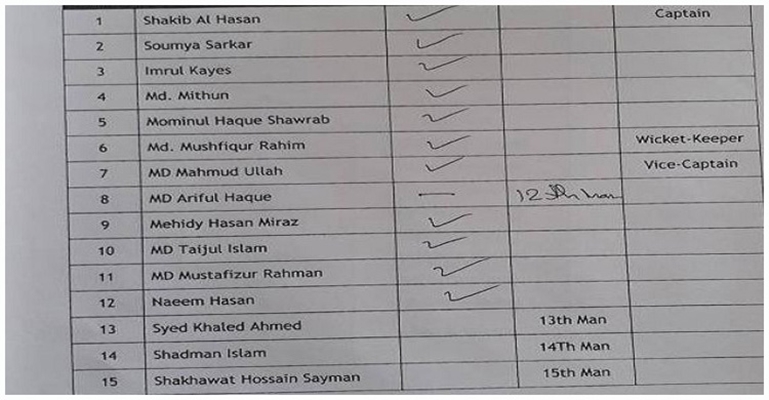 1 Shakib Al Hasan Captain
2 Soumya Sarkar
3 Imrul Kayes
4 Md. Mithun
5 Mominul Haque Shawrab
6 Md. Mushfiqur Rahim Wicket-Keeper
7 MD Mahmud Ullah Vice-Captain
8 MD Ariful Haque — 12th man
9 Mehidy Hasan Miraz
10 MD Taijul Islam
11 MD Mustafizur Rahman
12 Naeem Hasan
13 Syed Khaled Ahmed 13th Man
14 Shadman Islam 14Th Man
15 Shakhawat Hossain Sayman 15th Man